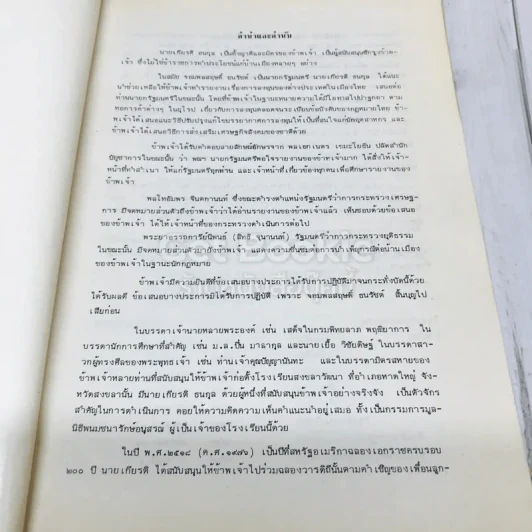 คำนำและคำนับ
นายเกียรติ ธนกุล เป็นทั้งญาติและมิตรของข้าพเจ้า เป็นผู้สนับสนุนซึ่งข้าพ-
เจ้า ซึ่งไม่ใช่ข้าราชการทำประโยชน์แก่บ้านเมืองหลายๆ อย่าง
ในสมัย จอมพลสฤษดิ์ ธนรัชต์ เป็นนายกรัฐมนตรี นายเกียรติ ธนกุล ได้แนะ
นำช่วยเหลือให้ข้าพเจ้าทำรายงาน เรื่องการลงทุนของต่างประเทศในเมืองไทย เสนอต่อ
ท่านนายกรัฐมนตรีในขณะนั้น โดยที่ข้าพเจ้าในฐานะทนายความได้มีโอกาสไปปาฐกถา ตาม
หอการค้าต่างๆ ในยุโรป เกี่ยวกับการลงทุนตลอดจนระเบียบข้อบังคับของกฎหมายไทย ข้าพ-
เจ้าได้เสนอแนะวิธีปรับปรุงแก้ไขบรรยากาศการลงทุนให้เป็นที่สนใจแก่นักอุตสาหกร และ
ข้าพเจ้าได้เสนอวิธีการส่งเสริมเศรษฐกิจสังคมของชาติด้วย
ข้าพเจ้าได้รับคำตอบลายลักษณ์อักษรจาก พลเอกเนตร เขมะโยธิน ปลัดสำนัก
บัญชาการในขณะนั้น ว่า พณฯ นายกรัฐมนตรีพอใจรายงานของข้าพเจ้ามาก ได้สั่งให้เจ้า-
หน้าที่ทำสำเนา ให้แก่รัฐมนตรีทุกท่าน และเจ้าหน้าที่เกี่ยวข้องทุกคนเพื่อศึกษารายงานของ
ข้าพเจ้า
พลโทอัมพร จินตกานนท์ ซึ่งขณะดำรงตำแหน่งรัฐมนตรีว่าการกระทรวงเศรษฐ-
การ มีจดหมายส่วนตัวถึงข้าพเจ้าว่าได้อ่านรายงานของข้าพเจ้าแล้ว เห็นชอบด้วยข้อเสนอ
ของข้าพเจ้า ได้ให้เจ้าหน้าที่ของกระทรวงดำเนินการต่อไป
พระยาอรรถการีย์นิพนธ์ (สิทธิ จุนานนท์) รัฐมนตรีว่าการกระทรวงยุติธรรม
ในขณะนั้น มีจดหมายส่วนตัวมาถึงข้าพเจ้า แสดงความชื่นชมต่อการบำเพ็ญกรณีต่อบ้านเมือง
ของข้าพเจ้าในฐานะนักกฎหมาย
ข้าพเจ้ามีความยินดีที่ข้อเสนอบางประการได้รับการปฏิบัติมาจนกระทั่งบัดนี้ด้วย
ได้รับผลดี ข้อเสนอบางประการมิได้รับการปฏิบัติ เพราะ จอมพลสฤษดิ์ ธนรัชต์ สิ้นบุญไป
เสียก่อน
ในบรรดาเจ้านายหลายพระองค์ เช่น เสด็จในกรมพิทยลาภ พฤฒิยากร ใน
บรรดานักการศึกษาที่สำคัญ เช่น ม.ล.ปิ่น มาลากุล และนายเยื้อ วิชัยดิษฐ์ ในบรรดาสา-
วกผู้ทรงศีลของพระพุทธเจ้า เช่น ท่านเจ้าคุณปัญญานันทะ และในบรรดามิตรสหายของ
ข้าพเจ้าหลายท่านที่สนับสนุนให้ข้าพเจ้าก่อตั้งโรงเรียนสงขลาวัฒนา ที่อำเภอหาดใหญ่ จัง-
หวัดสงขลานั้น มีนายเกียรติ ธนกุล ด้วยผู้หนึ่งที่สนับสนุนข้าพเจ้าอย่างจริงจัง เป็นตัวจักร
สำคัญในการดำเนินการ คอยให้ความคิดความเห็นคำแนะนำอยู่เสมอ ทั้งเป็นกรรมการมูล-
นิธิพนมชนารักษ์อนุสรณ์ ผู้เป็นเจ้าของโรงเรียนนี้ด้วย
ในปี พ.ศ.๒๕๑๘ (ค.ศ.๑๙๗๖) เป็นปีที่สหรัฐอเมริกาฉลองเอกราชครบรอบ
๒๐๐ ปี นายเกียรติ ได้สนับสนุนให้ข้าพเจ้าไปร่วมฉลองวารดิถีนั้นตามคำเชิญของเพื่อนลูก-